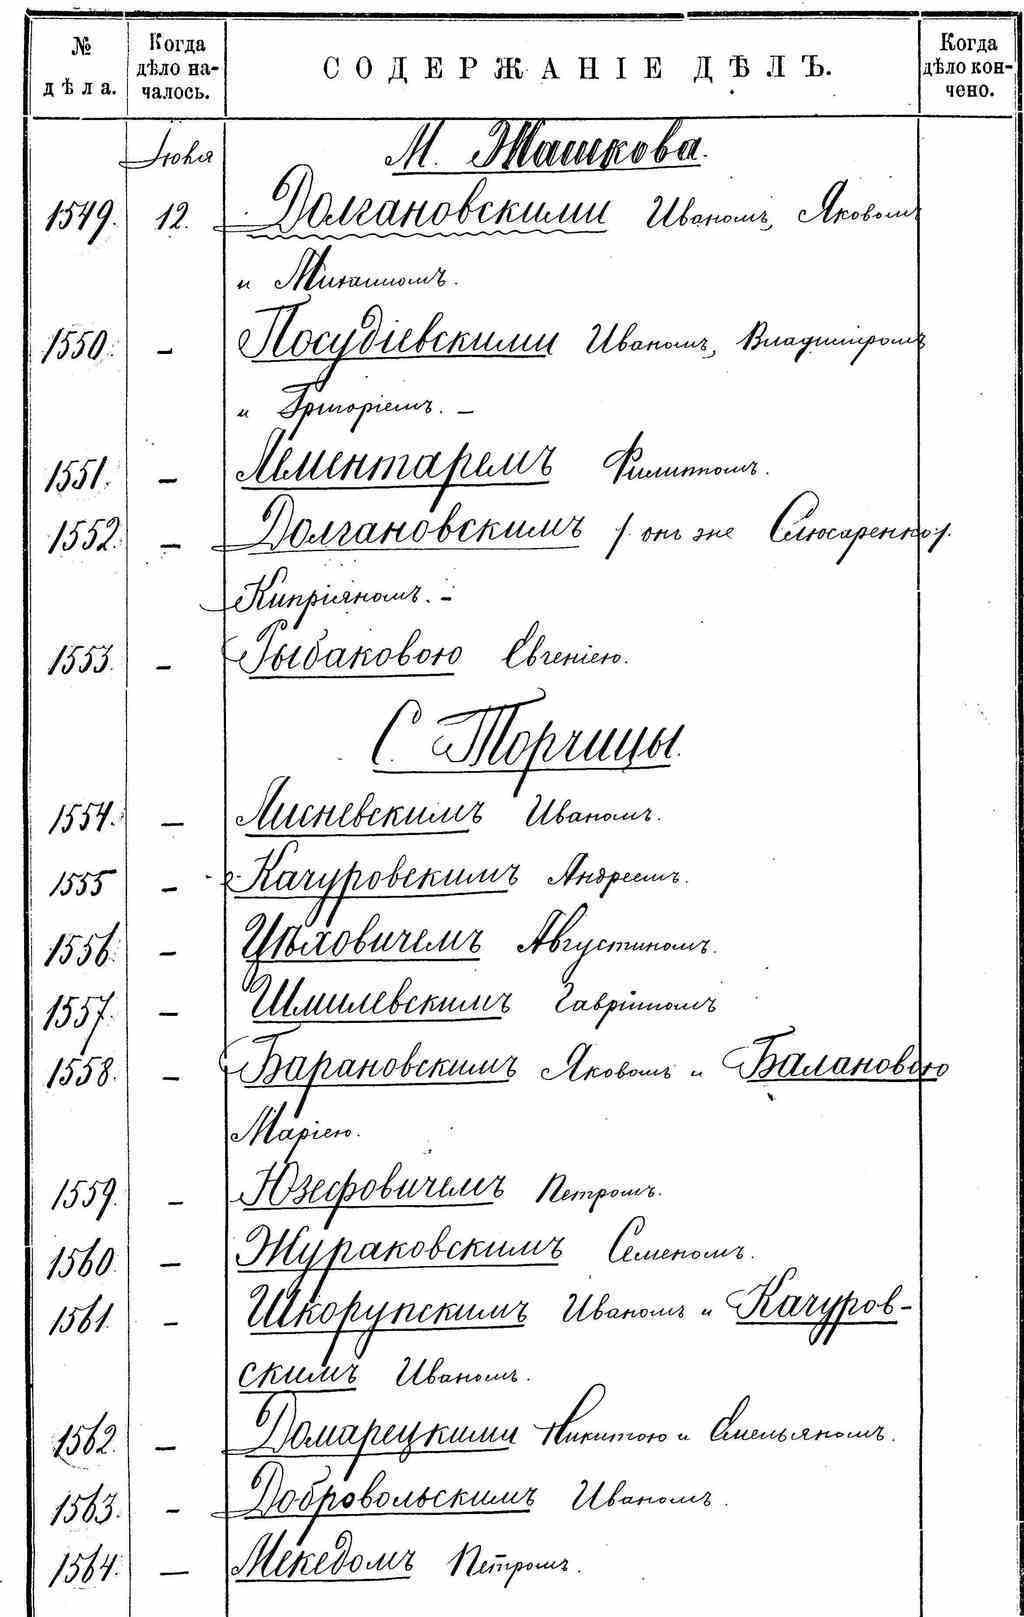 № дѣла.
Когда дѣло на-чалось.
СОДЕРЖАНІЕ ДѢЛЪ.
Когда дѣло кон-чено.
Іюня М. Жашкова.
1549. 12. Долгановскими Иваномъ, Яковомъ
и Михаиломъ.
1550. – Посудіевскими Иваномъ, Владиміромъ
и Григоріемъ. –
1551. – Лементаремъ Филиппомъ.
1552. – Долгановскимъ /. онъ же Слюсаренко /.
Кипріяномъ. –
1553. – Рыбаковою Евгеніею.
С. Торчицы.
1554. – Лисневскимъ Иваномъ.
1555 – Качуровскимъ Андреемъ.
1556. – Цѣховичемъ Августиномъ.
1557. – Шмилевскимъ Гавріиломъ
1558. – Барановскимъ Яковомъ и Балановою
Маріею.
1559. – Юзефовичемъ Петромъ.
1560. – Жураковскимъ Семеномъ.
1561. – Шкорупскимъ Иваномъ и Качуров-
скимъ Иваномъ.
1562. – Домарецкими Никитою и Емельяномъ.
1563. – Добровольскимъ Иваномъ.
1564. – Мекедомъ Петромъ.